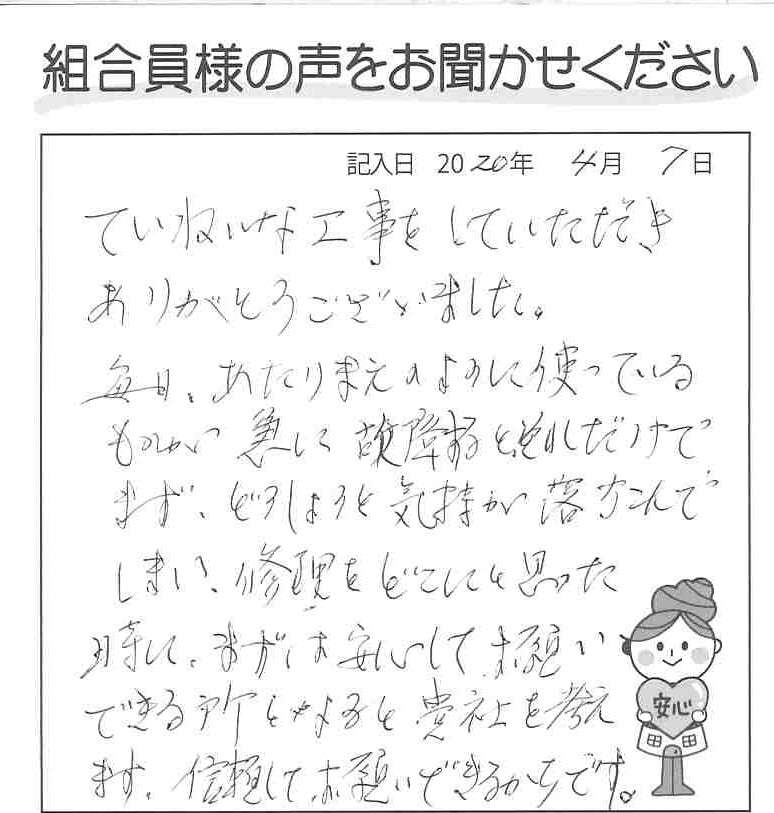 組合員様の声をお聞かせください
記入日 2020年 4月 7日
ていねいな工事をしていただき
ありがとうございました。
毎日、あたりまえのように使っている
ものが急に故障するとそれだけで
まず、どうしようと気持が落ちこんで
しまい、修理をどこにと思った
時に、まずは安心してお願い
できる所となると貴社を考え
ます。信頼してお願いできるからです。
安心